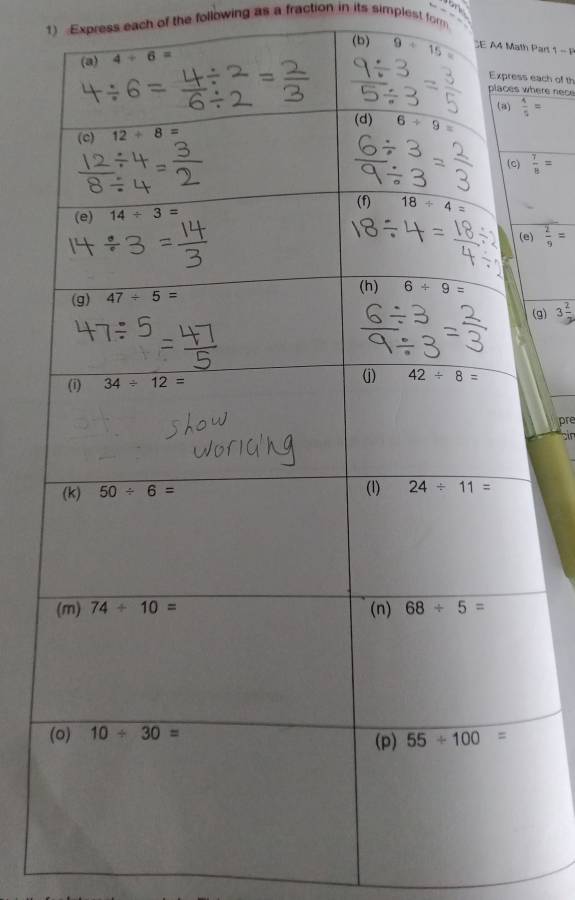 1) Express each of the following as a fraction in its simplest form
(a) 4 ÷ 6 =
4 ÷ 6 = 4÷2/6÷2 = 2/3
(b) 9 ÷ 15 =
9÷3/5÷3 = 3/5
(c) 12 ÷ 8 =
12÷4/8÷4 = 3/2
(d) 6 ÷ 9 =
6÷3/9÷3 = 2/3
(e) 14 ÷ 3 =
14 ÷ 3 = 14/3
(f) 18 ÷ 4 =
18 ÷ 4 = 18÷2/4÷2
(g) 47 ÷ 5 =
47 ÷ 5 = 47/5
(h) 6 ÷ 9 =
6÷3/9÷3 = 2/3
(i) 34 ÷ 12 =
show
working
(j) 42 ÷ 8 =
(k) 50 ÷ 6 =
(l) 24 ÷ 11 =
(m) 74 ÷ 10 =
(n) 68 ÷ 5 =
(o) 10 ÷ 30 =
(p) 55 ÷ 100 =
CE A4 Math Part 1 –
Express each of
places where
(a) 4/5 =
(c) 7/8 =
(e) 2/9 =
(g) 3